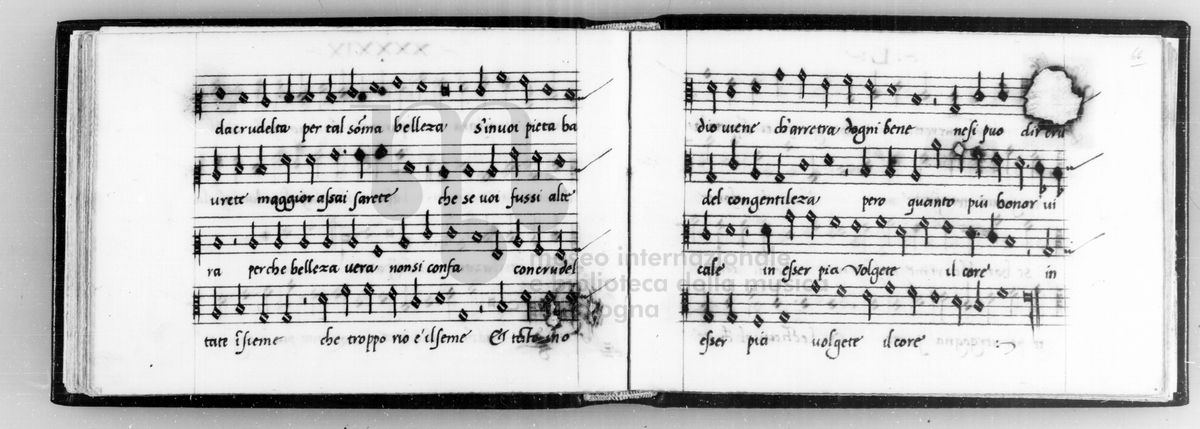 dacrudelta per tal sõma belleza s'inuoi pieta ha
urete maggior assai sarete che se uoi fussi alte
ra perche belleza uera nonsi confa concrudel
tate ĩsieme che troppo rio e'ilseme Et
dio uiene ch'arretra dogni bene nesi puo dir
del congentileza pero quanto piu honor ui
cale in esser pia volgete il core in
esser pia uolgete il core
museo internazionale
e biblioteca della musica
di bologna